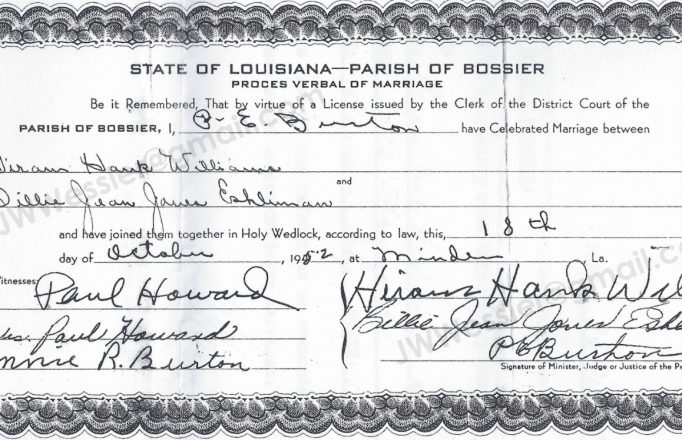 STATE OF LOUISIANA—PARISH OF BOSSIER
PROCES VERBAL OF MARRIAGE
Be it Remembered, That by virtue of a License issued by the Clerk of the District Court of the
PARISH OF BOSSIER, I, P. E Burton have Celebrated Marriage between
Hiram Hank Williams
and
Billie Jean Jones Eshliman
and have joined them together in Holy Wedlock, according to law, this, 18th
day of October, 1952, at Minden La.
Witnesses:
Paul Howard
Hiram Hank Wil
Mrs. Paul Howard
Billie Jean Jones Eshl
nnie R. Burton
P E Burton
Signature of Minister, Judge or Justice of the Pe
JWWessler@gmail.com
JWWessler@gmail.com